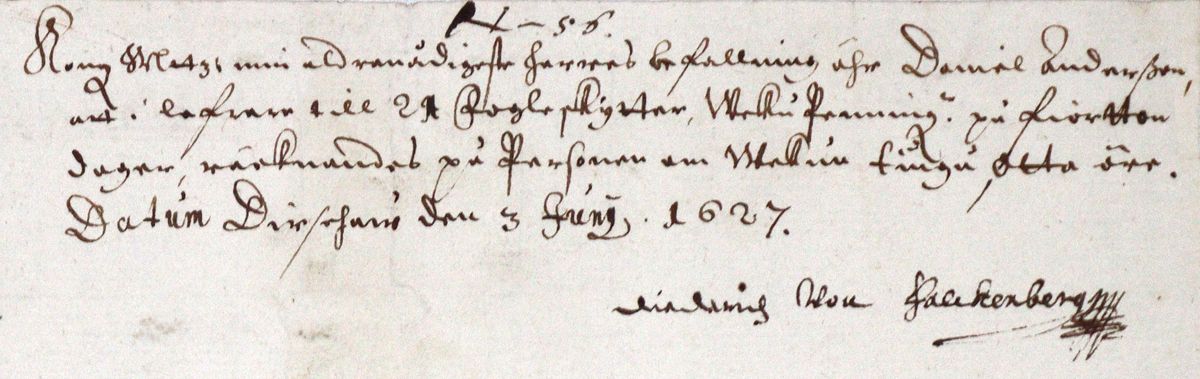 N – 56.
Kong Mattz: min aldranådigeste herres befallning ähr Daniel Anderßon,
att i lefrere till 24 Fogleskytter, Weku Penning. på fiortton
dager, räcknandes på Personen om Wekun tiugu otta öre.
Datum Dirschaw den 3 Junij. 1627.
Diederich Von Falckenberg